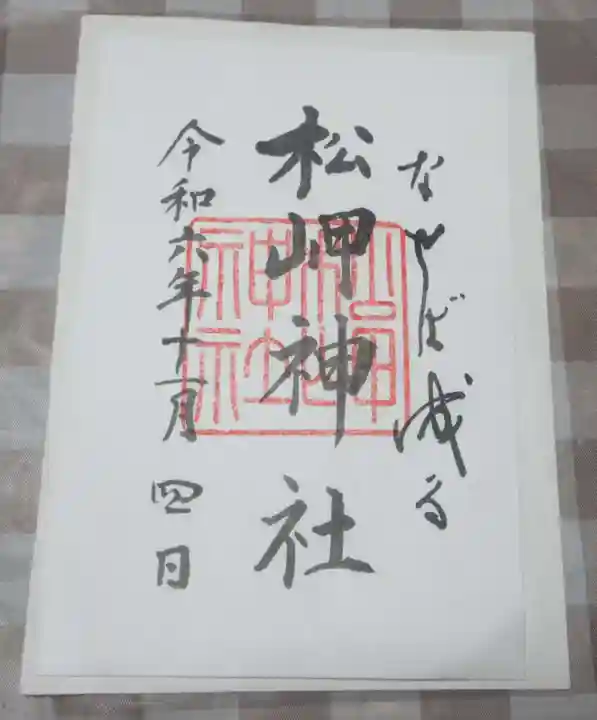 なせば成る
松岬神社
令和六年十一月四日